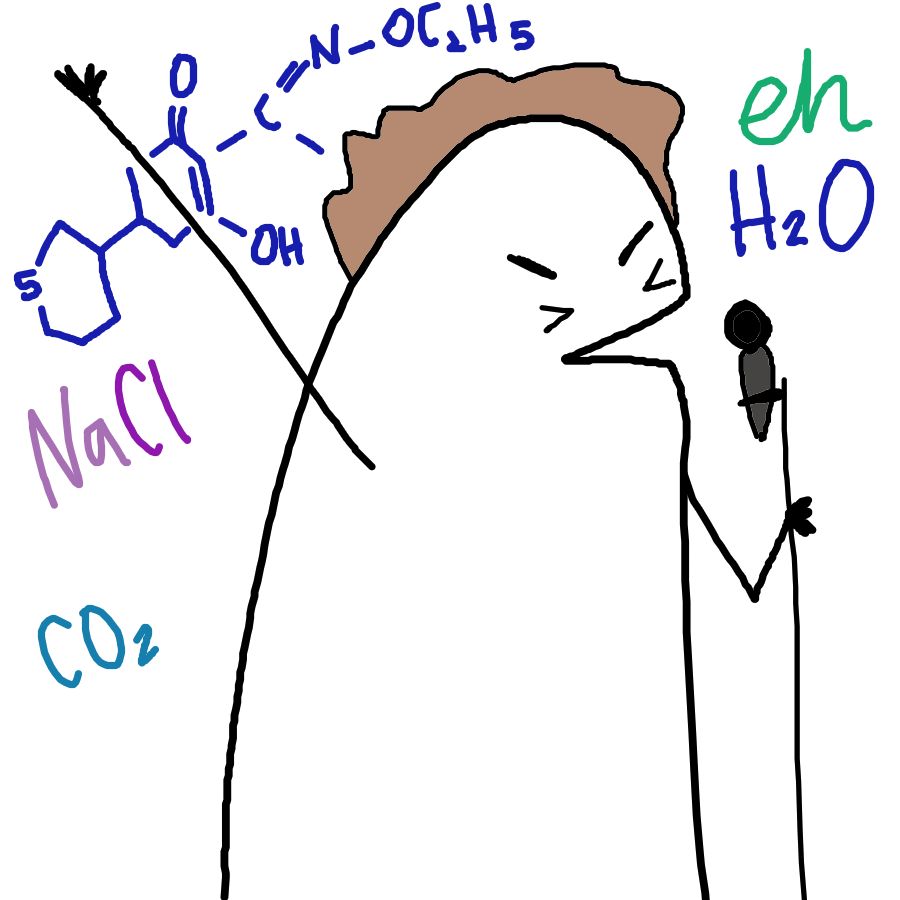 N-OC₂H₅
O
C
OH
S
eh
H₂O
NaCl
CO₂